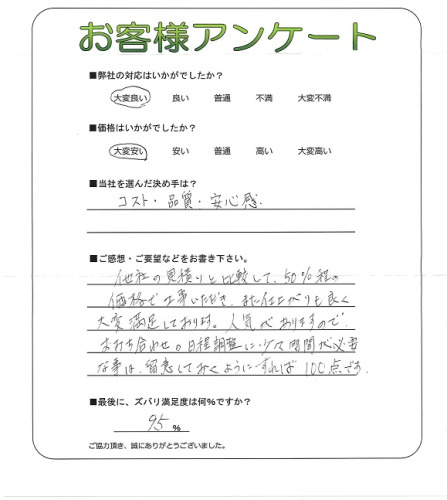 お客様アンケート
■弊社の対応はいかがでしたか？
大変良い 良い 普通 不満 大変不満
■価格はいかがでしたか？
大変安い 安い 普通 高い 大変高い
■当社を選んだ決め手は？
コスト・品質・安心感.
■ご感想・ご要望などをお書き下さい。
他社の見積りと比較して、50%程の
価格で工事いただき、また仕上がりも良く
大変満足しております。人気がありますので、
お打ち合わせの日程調整に少々時間が必要
な事は、留意しておくようにすれば100点です.
■最後に、ズバリ満足度は何%ですか？
95 %
ご協力頂き、誠にありがとうございました。